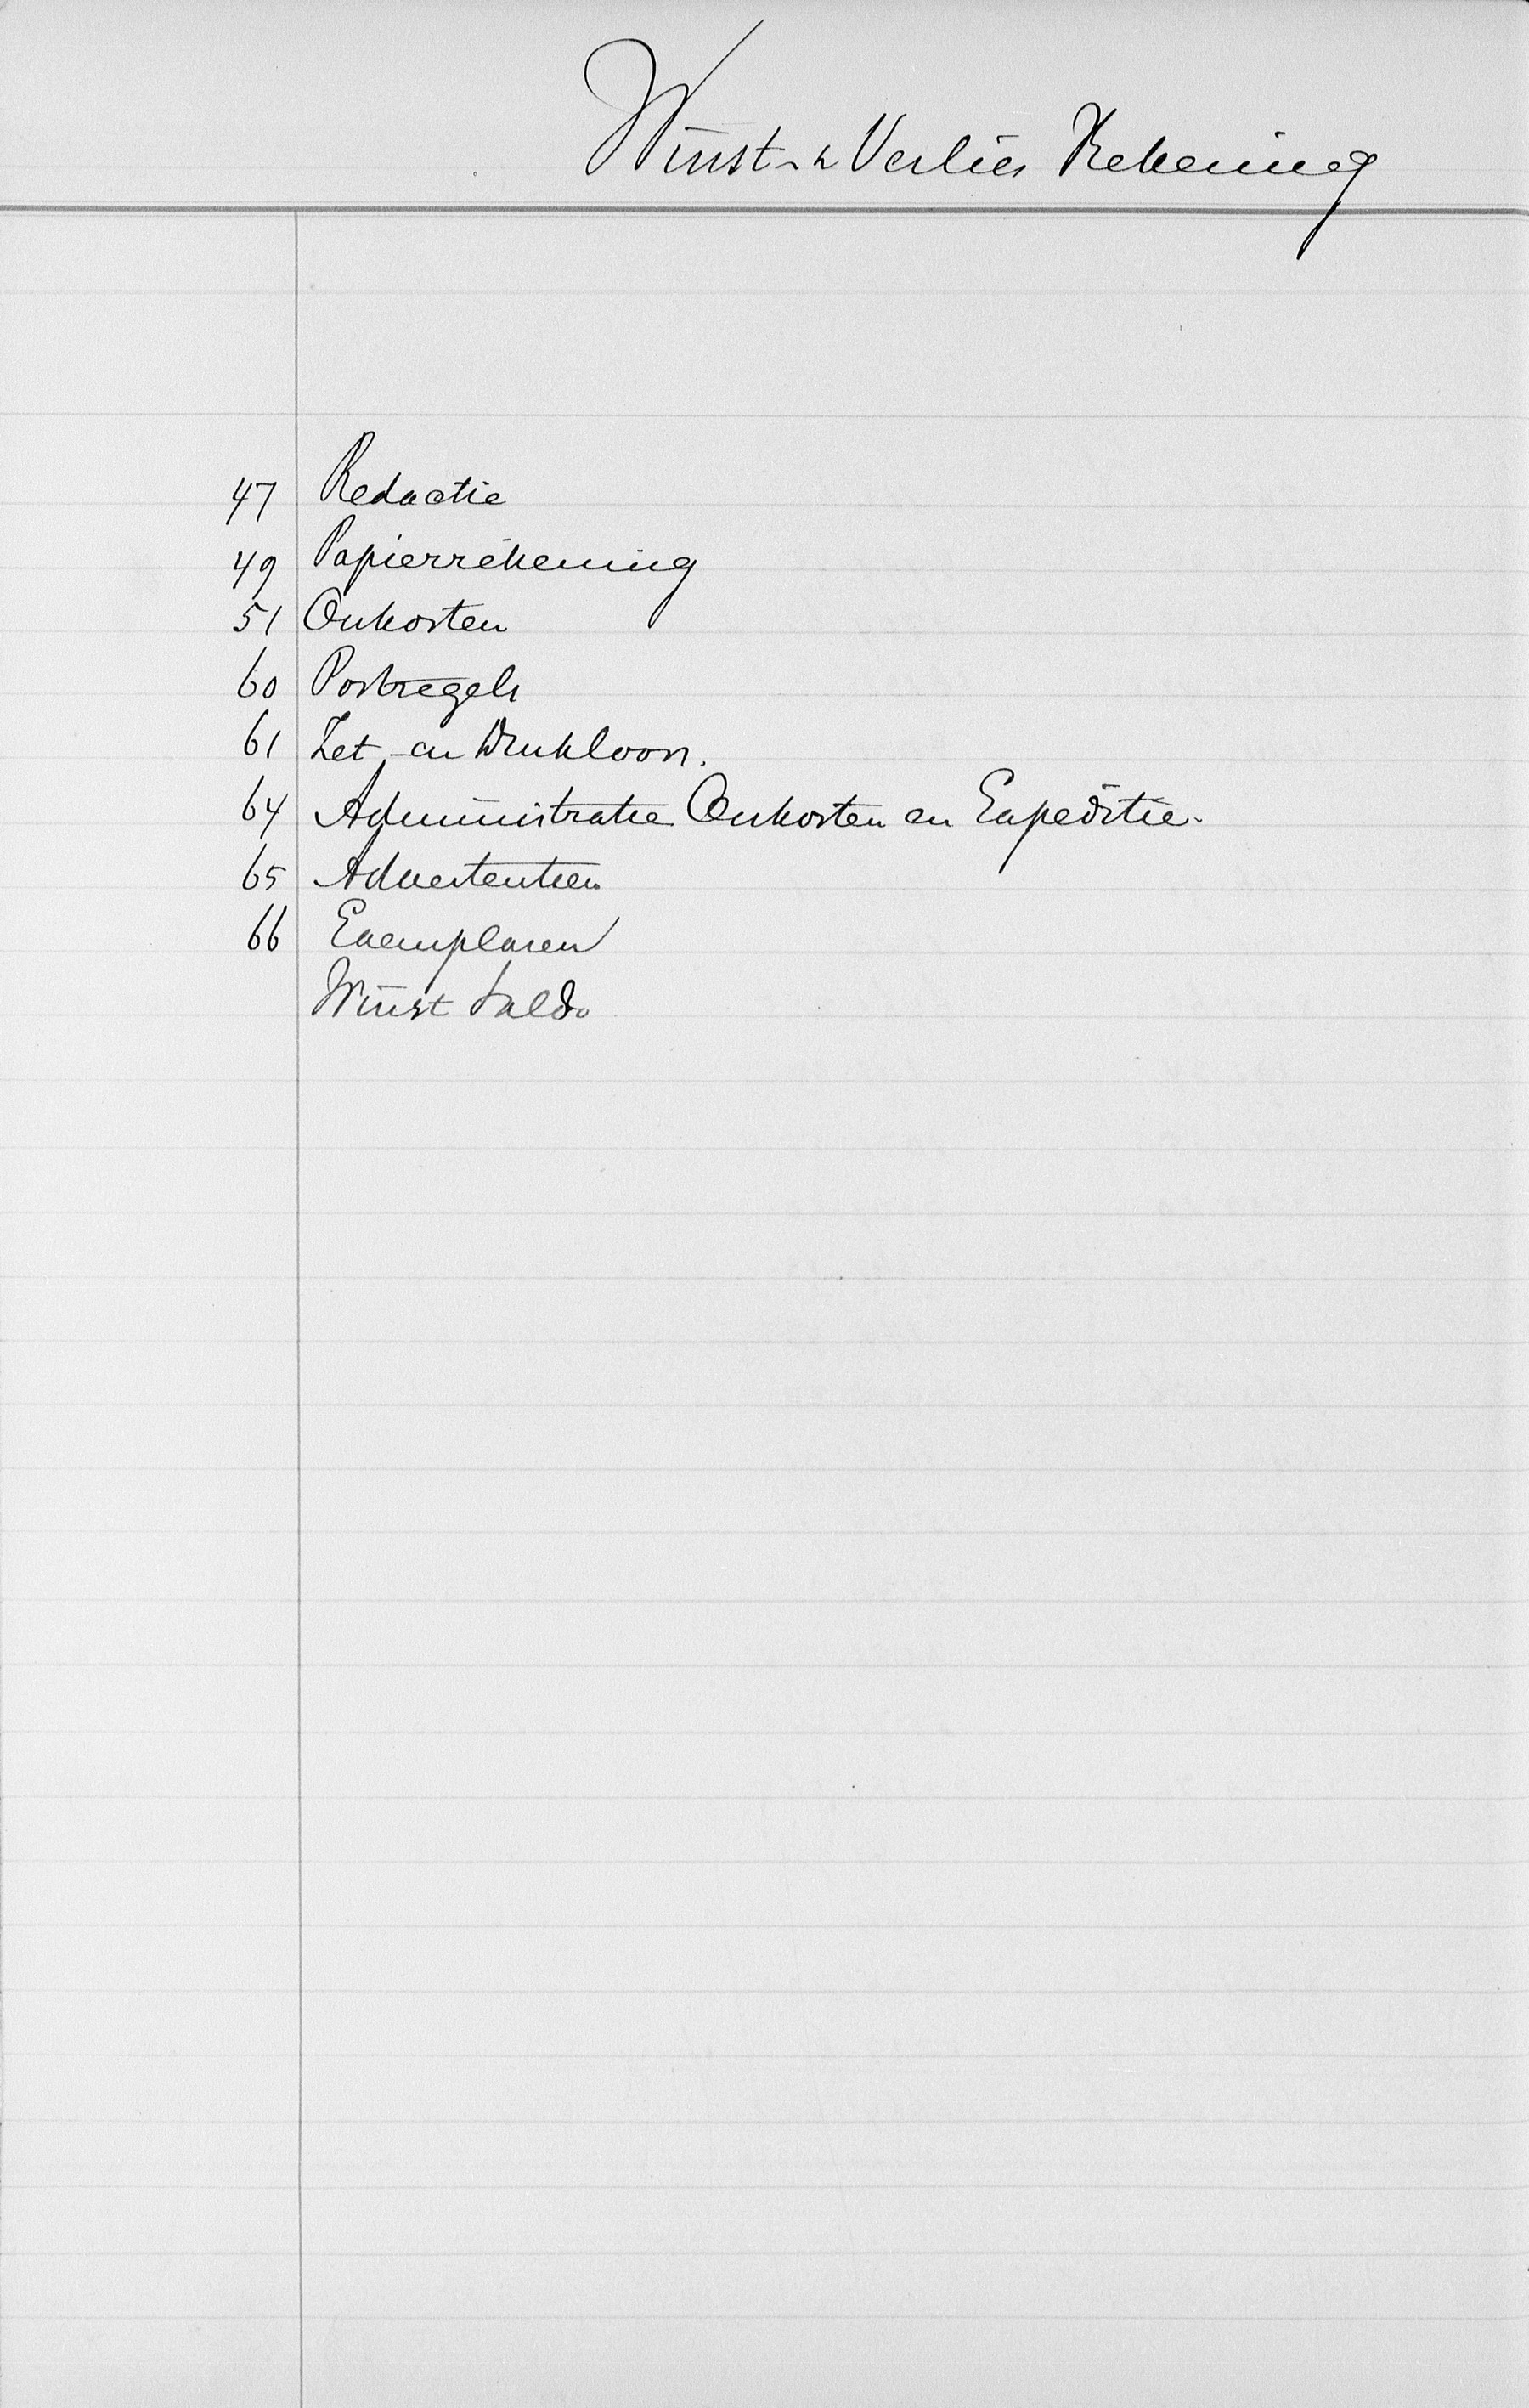 Winst- & Verlies Rekening
47 Redactie
49 Papierrekening
51 Onkosten
60 Postzegels
61 Zet- en Drukloon.
64 Administratie Onkosten en Expeditie.
65 Advertentien
66 Exemplaren
Winst Saldo